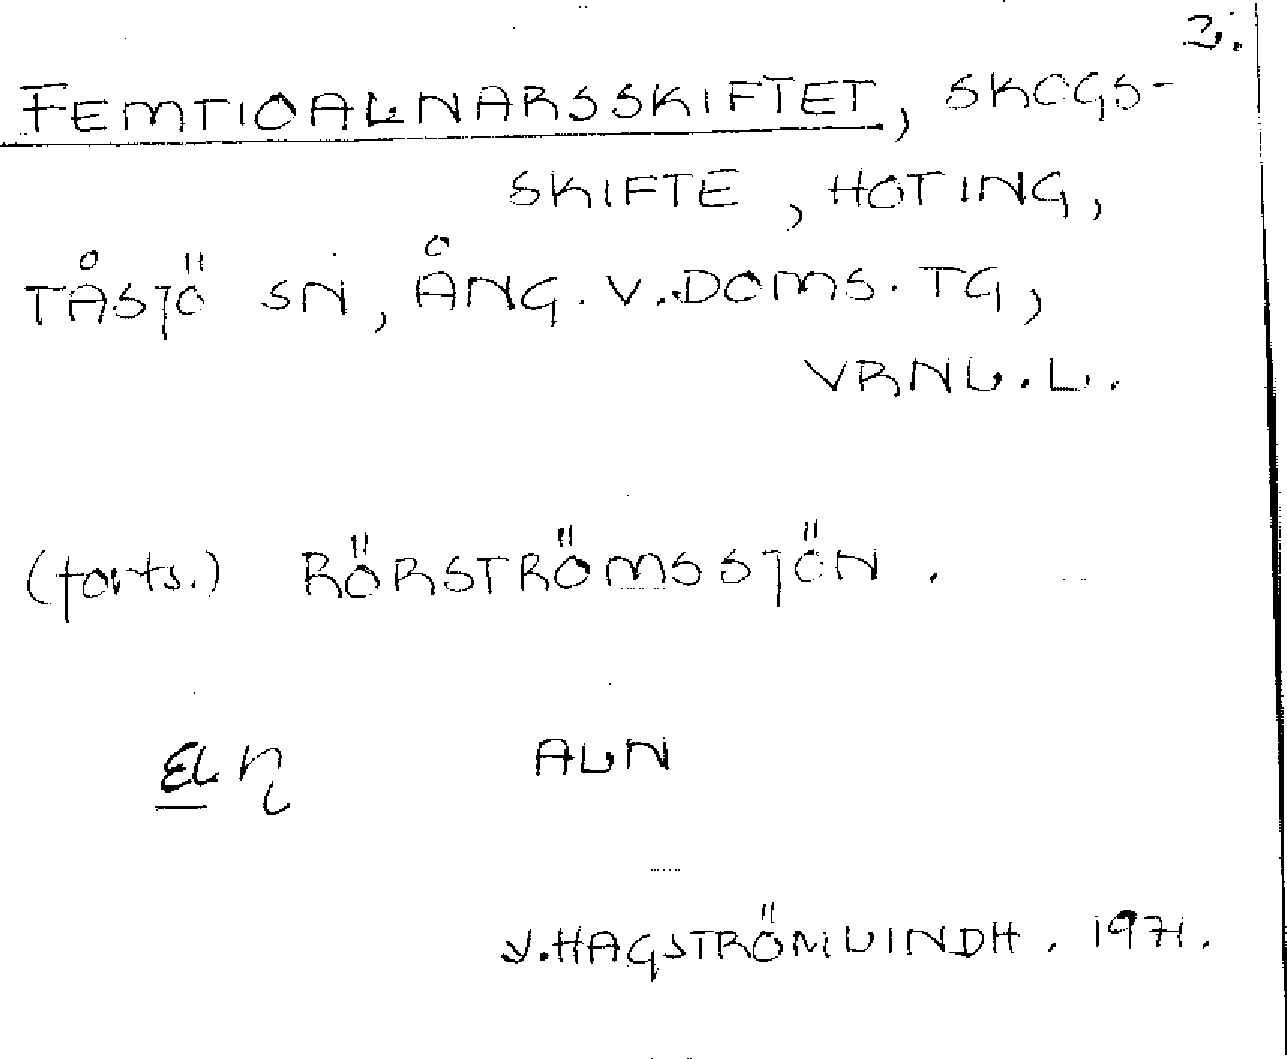 2.
FEMTIOALNARSSKIFTET, SKOGS-
SKIFTE, HOTING,
TÅSJÖ SN, ÅNG. V. DOMS. TG,
VRNL. L.
(forts.) RÖRSTRÖMSSJÖN.
ALN
V. HAGSTRÖM LINDH. 1971.